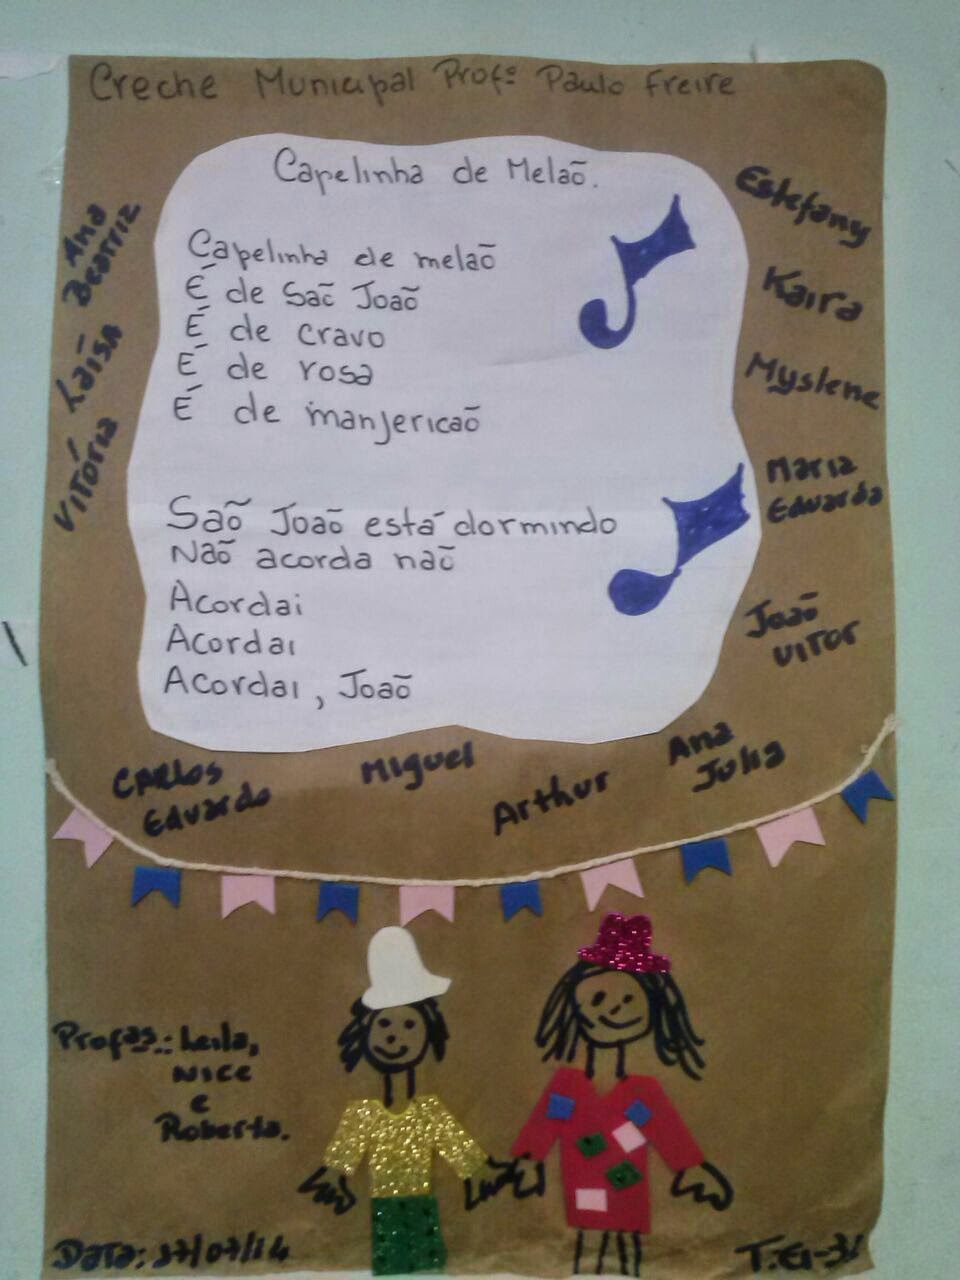 Creche Municipal Profº Paulo Freire
Capelinha de Melaõ.
Capelinha de melaõ
É de Saõ Joaõ
É de cravo
É de rosa
É de manjericaõ
Saõ Joaõ está dormindo
Naõ acorda naõ
Acordai
Acordai
Acordai, Joaõ
Ana
Beatriz
Laísa
Vitória
Estefany
Kaira
Myslene
Maria
Eduarda
Joaõ
Vitor
Carlos
Eduardo
Miguel
Arthur
Ana
Julia
Profas.: Leila,
Nice
e
Roberta.
Data: 17/07/14
T.EI-31